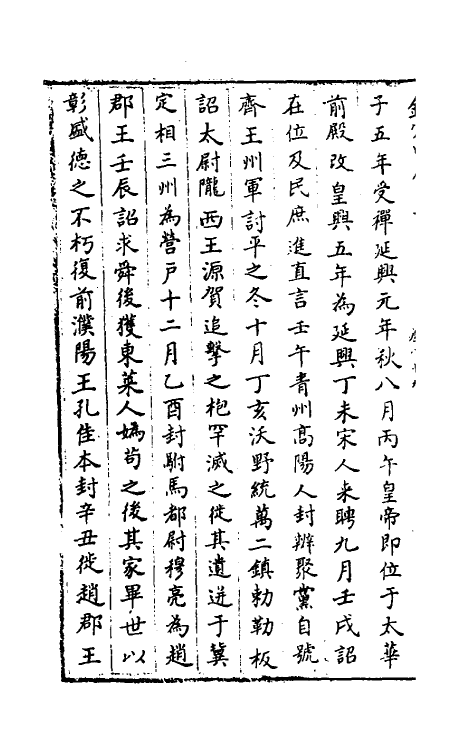 子五年受禪延興元年秋八月丙午皇帝即位于太華
前殿改皇興五年為延興丁未宋人来聘九月壬戌詔
在位及民庶進直言壬午青州髙陽人封辨聚黨自號
齊王州軍討平之冬十月丁亥沃野統萬二鎮勅勒板
詔太尉隴西王源賀追擊之枹罕滅之徙其遺迸于冀
定相三州為營戸十二月乙酉封駙馬都尉穆亮為趙
郡王壬辰詔求舜後獲東萊人媯苟之後其家畢世以
彰盛徳之不朽復前濮陽王孔隹本封辛丑徙趙郡王